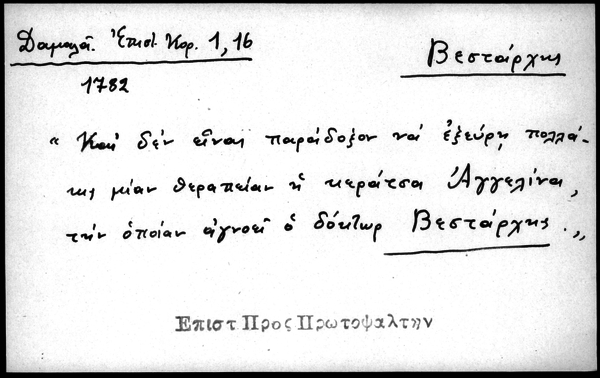 Δαμαλᾶ. Ἐπιστ. Κορ. 1, 16
Βεστάρχης
1782
“ Καὶ δέν εἶναι παράδοξον νά ἐξεύρῃ πολλά-
κις μίαν θεραπείαν ἡ κεράτσα Ἀγγελίνα,
τήν ὁποίαν ἀγνοεῖ ὁ δόκτωρ Βεστάρχης.„
Επιστ Προς Πρωτοψαλτην